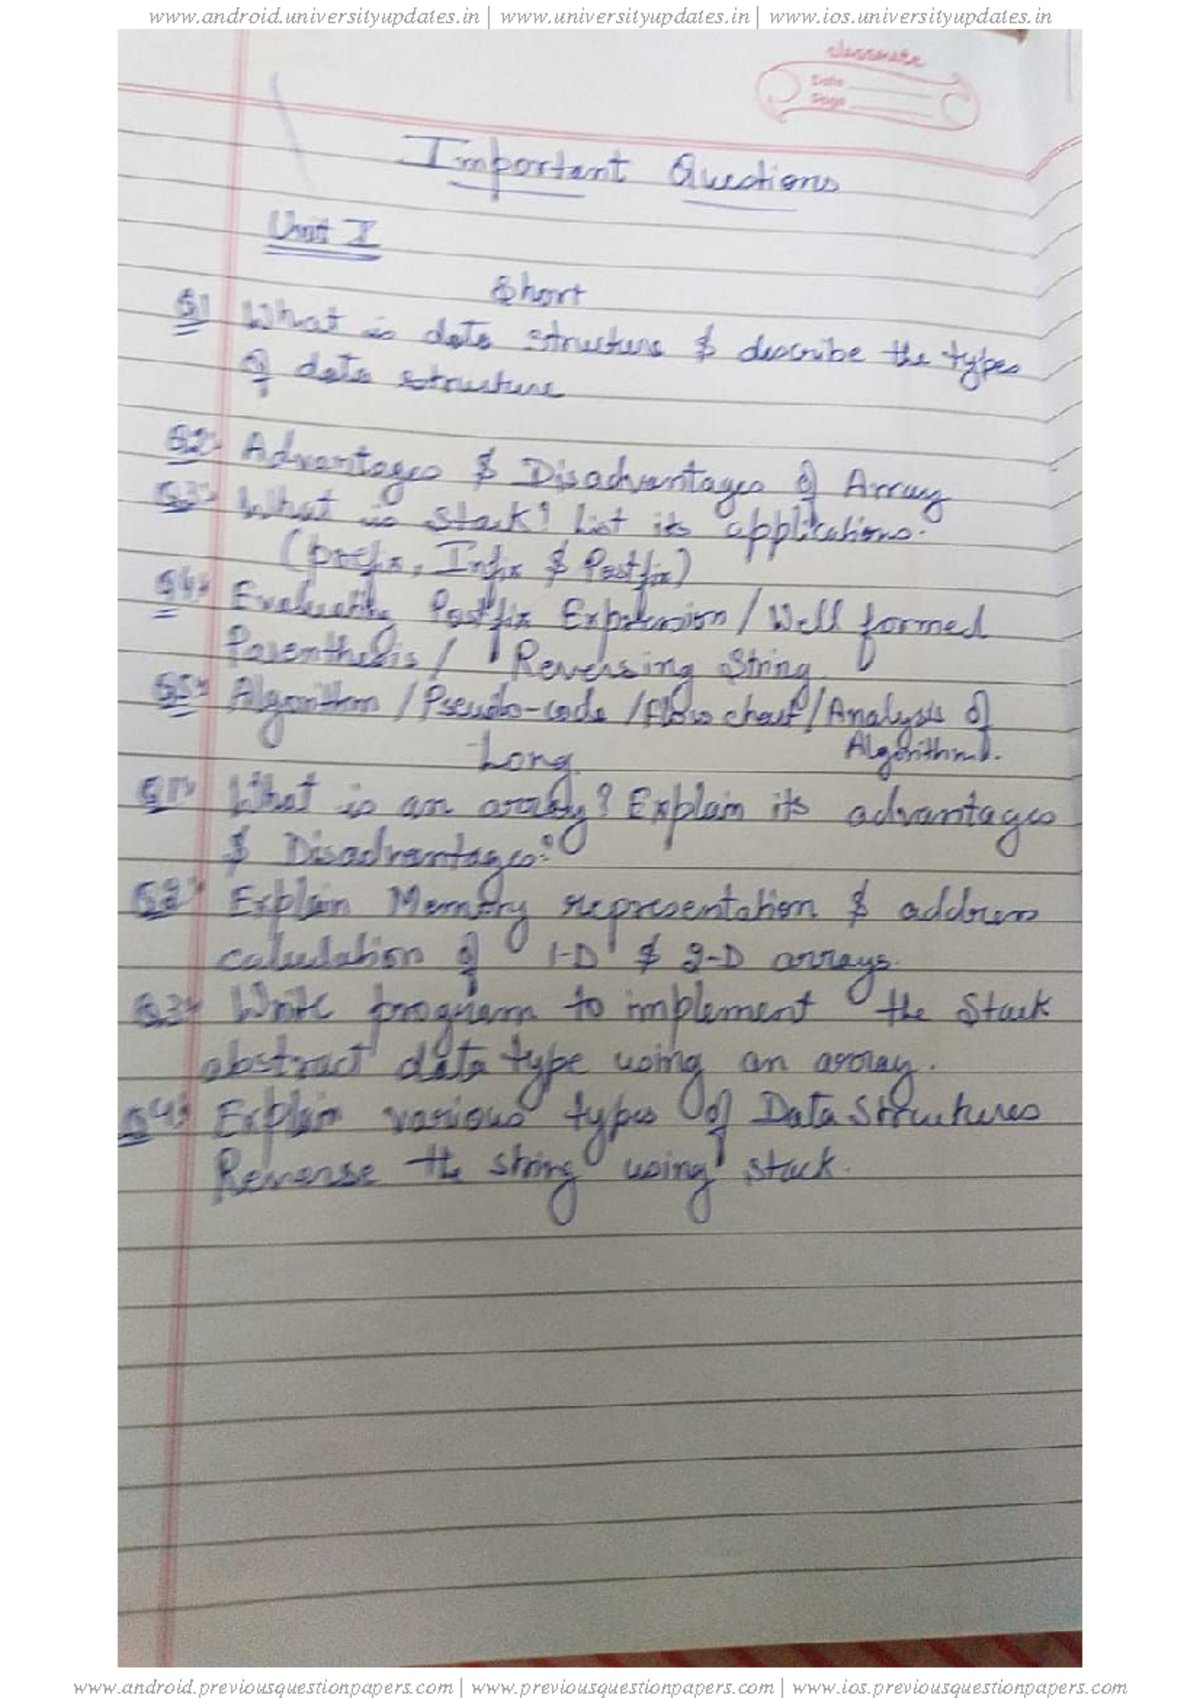 www.android.universityupdates.in | www.universityupdates.in | www.ios.universityupdates.in
classmate
Date
Page
Important Questions
Unit I
Short
Q1 What is data structure & describe the types
of data structure
Q2. Advantages & Disadvantages of Array
Q3. What is Stack? List its applications.
(Prefix, Infix & Postfix)
Q4. Evaluating Postfix Expression / Well formed
Parenthesis / Reversing String
Q5. Algorithm / Pseudo-code / Flow chart / Analysis of
Algorithm.
Long
Q1. What is an array? Explain its advantages
& Disadvantages?
Q2. Explain Memory representation & address
calculation of 1-D & 2-D arrays.
Q3. Write program to implement the Stack
abstract data type using an array.
Q4. Explain various types of Data Structures
Reverse the string using stack.
www.android.previousquestionpapers.com | www.previousquestionpapers.com | www.ios.previousquestionpapers.com